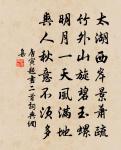 太湖西岸景蕭疏
竹外山旋碧玉螺
明月一天風滿地
與人秋意不須多
唐寅題畫二首詞典網
集